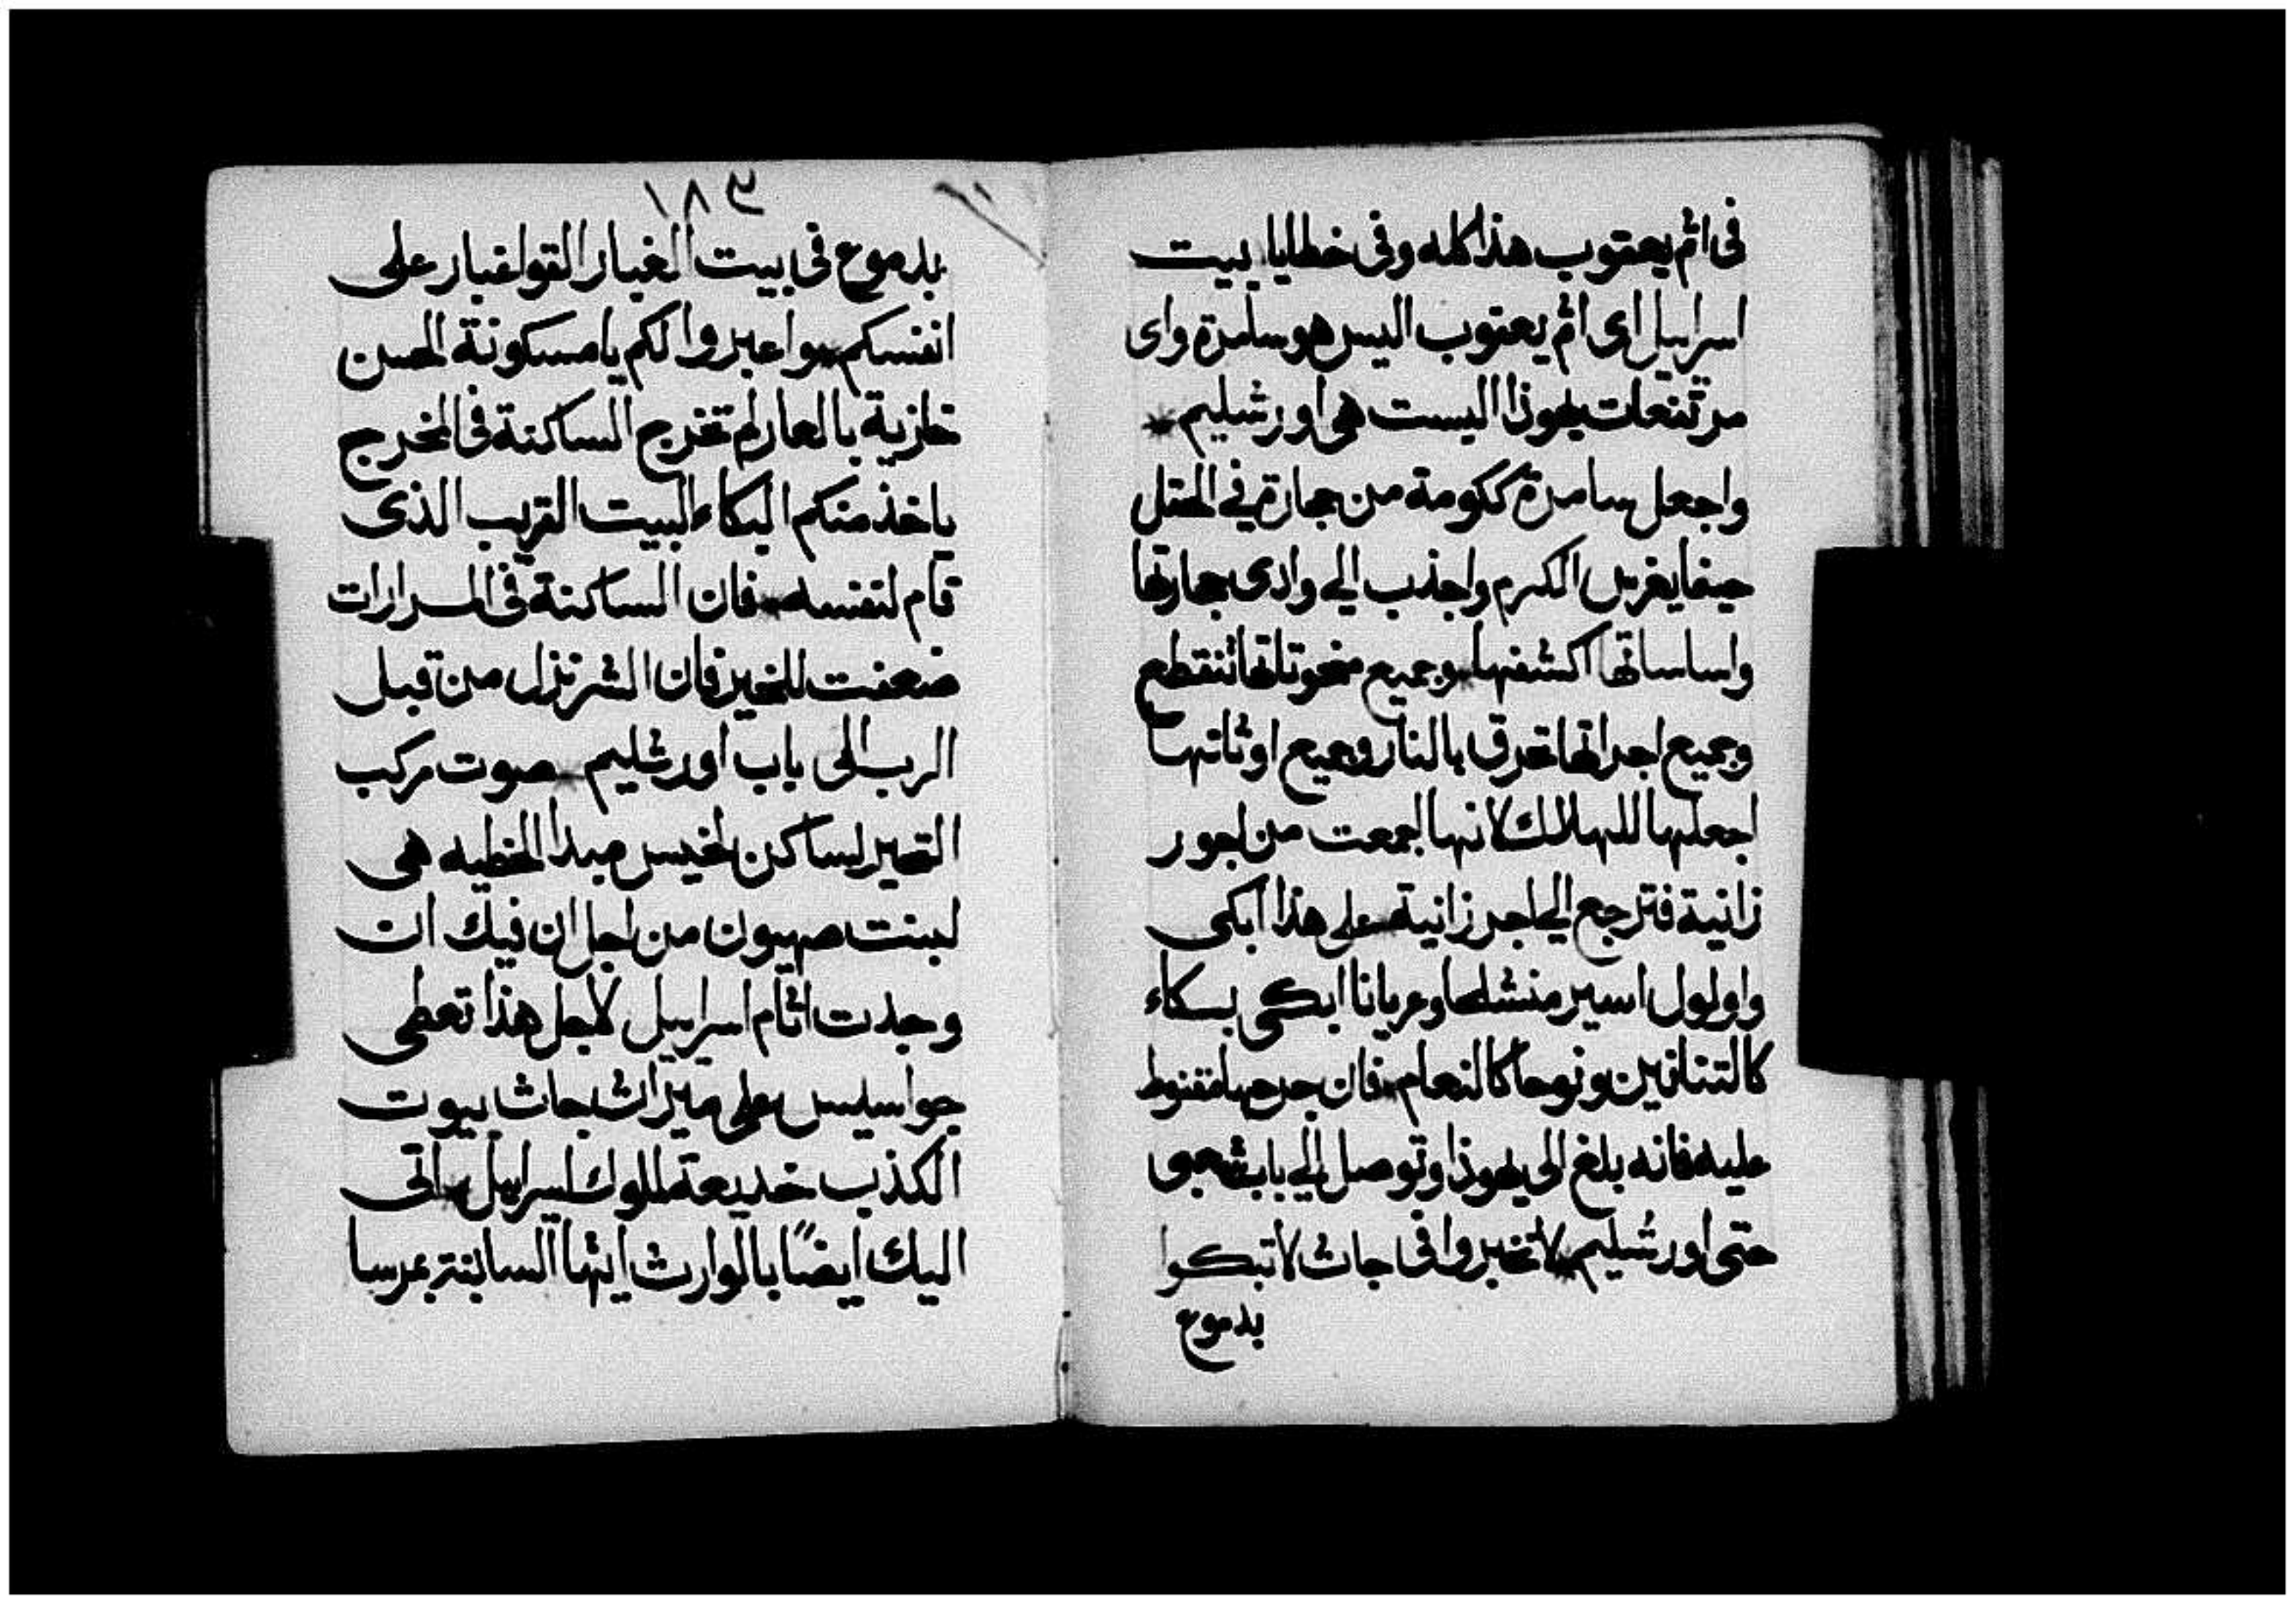 فى اثم يعقوب هذا كله وفى خطايا بيت
اسراييل اى اثم يعقوب اليس هو سامرة واى
مرتفعات يهوذا اليست هى اورشليم
واجعل سامرة ككومة من حجارة في الحقل
حينما يغرس الكرم واجذب الي وادى حجارتها
واساساتها اكشفها وجميع منحوتاتها تنقطع
وجميع اجراتها تحرق بالنار وجميع اوثانها
اجعلها للهلاك لانها اجمعت من اجور
زانية فترجع الي اجر زانية على هذا ابكى
واولول اسير منشلحا وعريانا ابكى بكاء
كالتنانين ونوحا كالنعام فان جرحها مقنوط
عليه فانه بلغ الى يهوذا وتوصل الي باب شعبى
حتى اورشليم لا تخبروا فى جاث لا تبكوا
بدموع
١٨٣
بدموع فى بيت الغبار القوا غبار على
انفسكم واعبروا لكم يا مسكونة الحسن
خازية بالعار لم تخرج الساكنة فى المخرج
ياخذ منكم البكاء البيت القريب الذى
قام لنفسه فان الساكنة فى المرارات
ضعفت للخير فان الشر نزل من قبل
الرب الى باب اورشليم صوت مركب
التحير لساكن لخيس مبدا الخطيه هى
لبنت صهيون من اجل ان فيك ان
وجدت اثام اسراييل لاجل هذا تعطى
جواسيس على ميراث جاث بيوت
الكذب خديعة لملوك اسراييل اتى
اليك ايضًا بالوارث ايتها السا